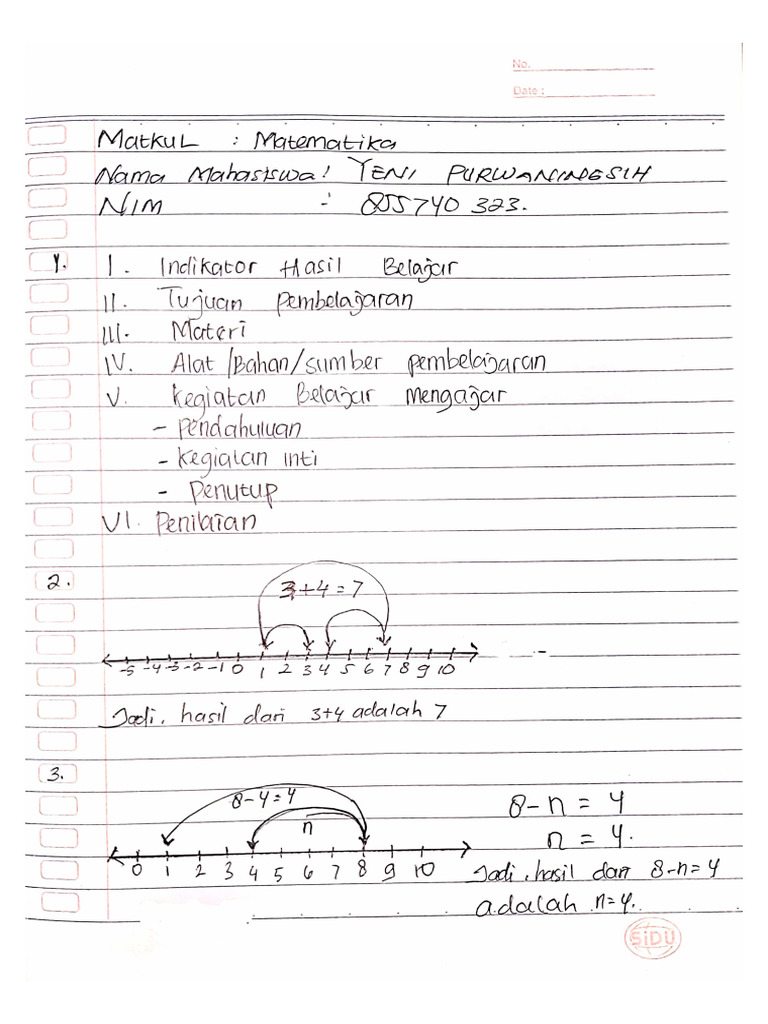 No.
Date :
Matkul : Matematika
Nama Mahasiswa : YENI PURWANINGSIH
NIM : 855740323.
1. I. Indikator Hasil Belajar
II. Tujuan pembelajaran
III. Materi
IV. Alat/Bahan/sumber pembelajaran
V. Kegiatan Belajar mengajar
- Pendahuluan
- Kegiatan inti
- Penutup
VI. Penilaian
2. 3+4=7
-5 -4 -3 -2 -1 0 1 2 3 4 5 6 7 8 9 10
Jadi, hasil dari 3+4 adalah 7
3.
8-4=4
n
0 1 2 3 4 5 6 7 8 9 10
8-n = 4
n = 4.
Jadi, hasil dari 8-n=4
adalah n=4.
SiDU